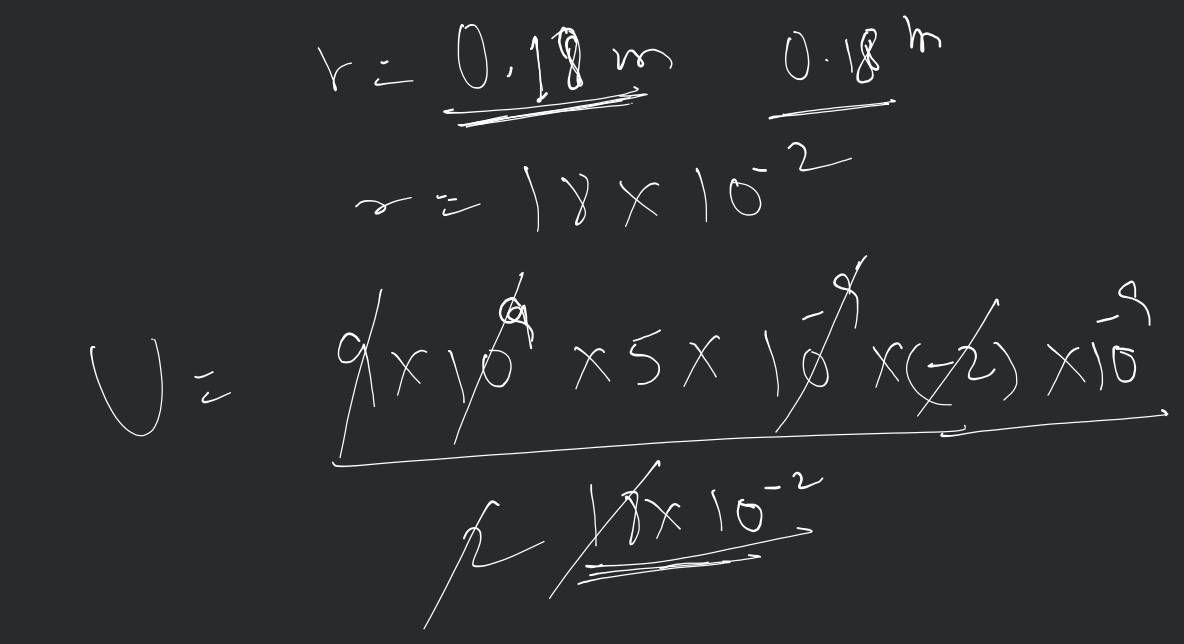 r = 0.18 m 0.18 m
r = 18 × 10⁻²
U = 9 × 10⁹ × 5 × 10⁻⁹ × (-2) × 10⁻⁹
2 18 × 10⁻²